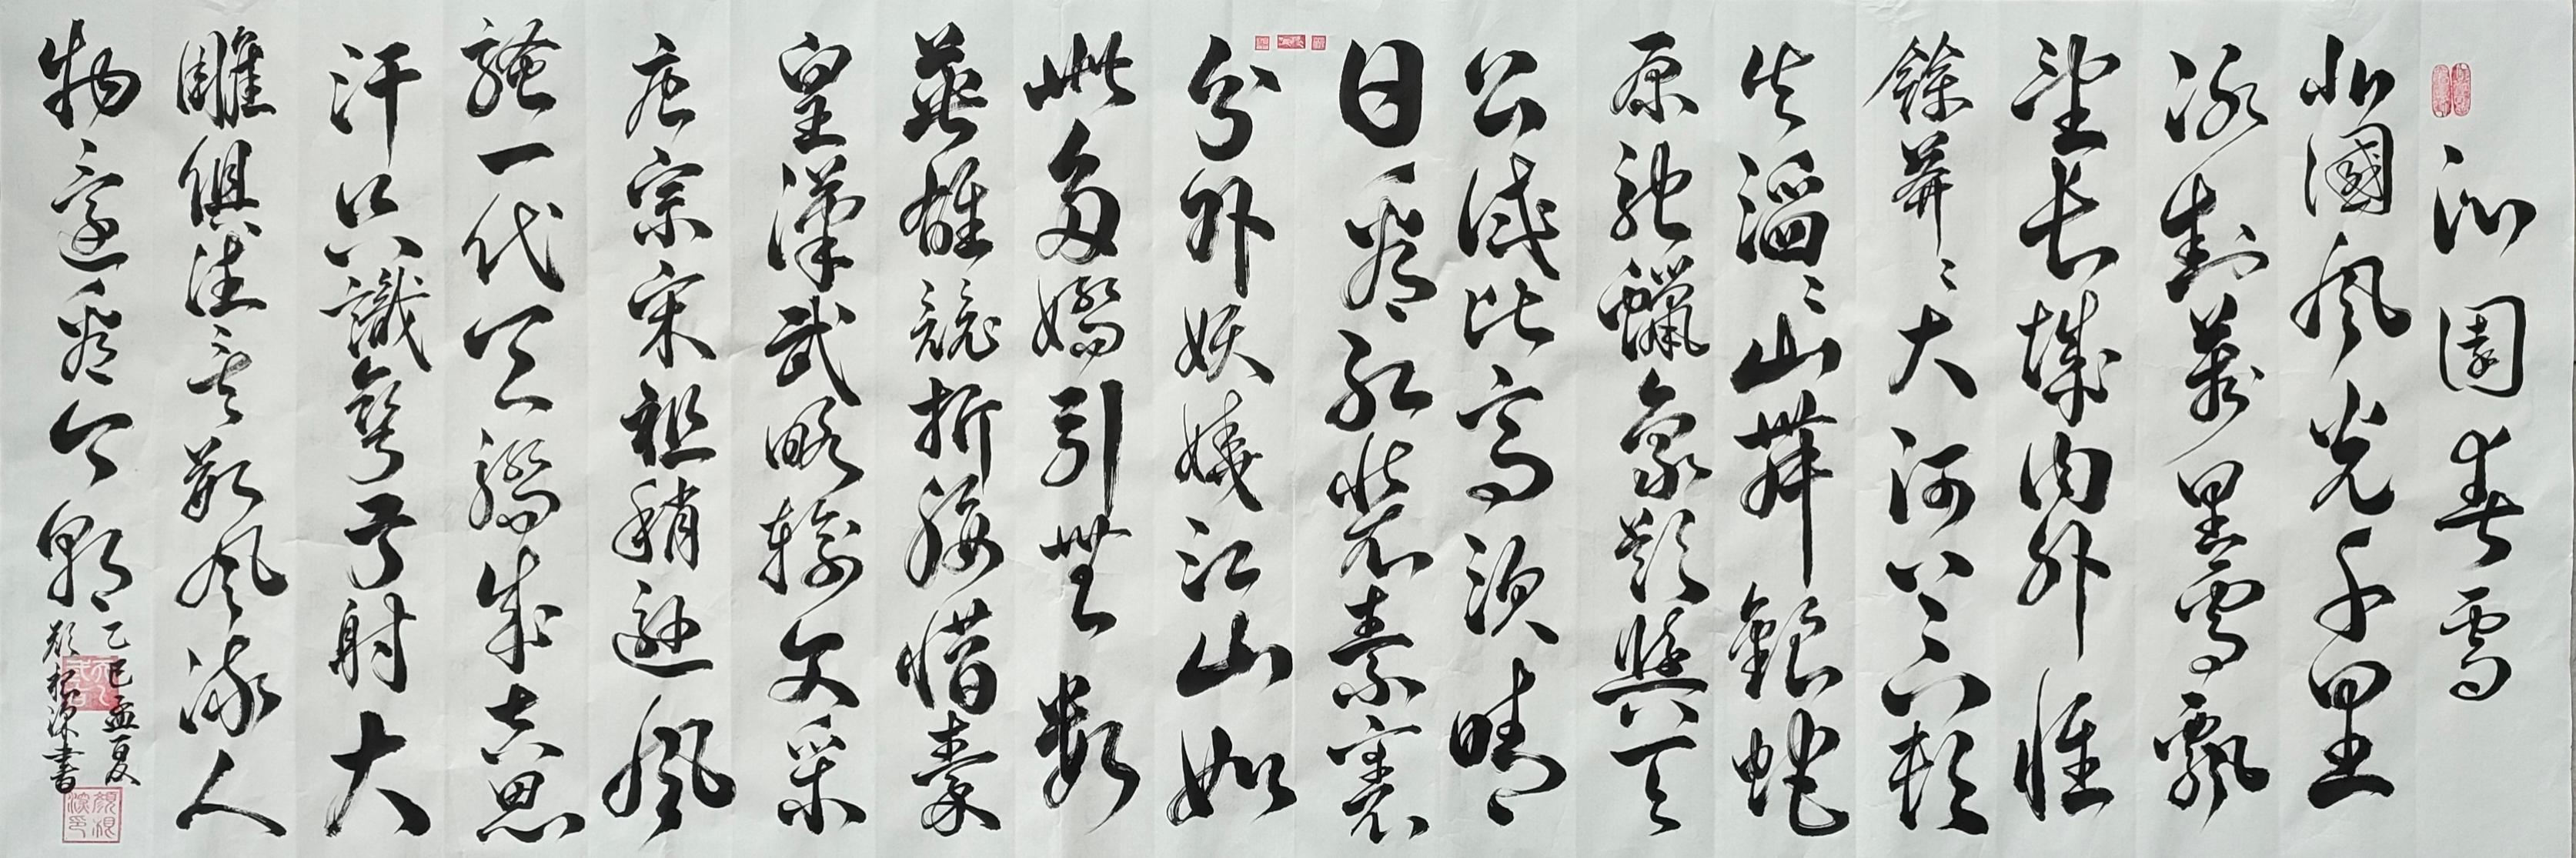 沁園春雪
北國風光千里
冰封萬里雪飄
望長城內外惟
餘莽〻大河上下頓
失滔〻山舞銀蛇
原馳蠟象欲與天
公試比高須晴
日看紅裝素裹
分外妖嬈江山如
此多嬌引無數
英雄競折腰惜秦
皇漢武略輸文采
唐宗宋祖稍遜風
騷一代天驕成吉思
汗只識彎弓射大
雕俱往矣數風流人
物還看今朝
乙巳孟夏
顏根源書